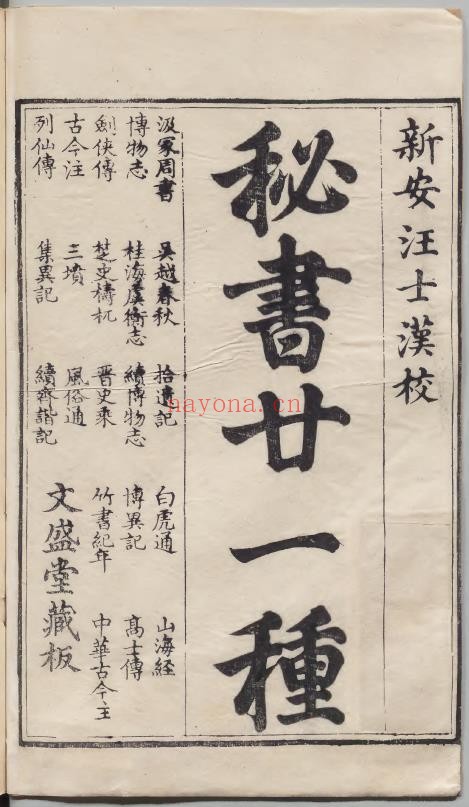 新安汪士漢校
秘書廿一種
汲冢周書 吳越春秋 拾遺記 白虎通 山海經
博物志 桂海虞衡志 續博物志 博異記 高士傳
劍俠傳 楚史檮杌 晉史乘 竹書紀年 中華古今注
古今注 三墳 風俗通
列仙傳 集異記 續齊諧記
文盛堂藏板
nayona.cn